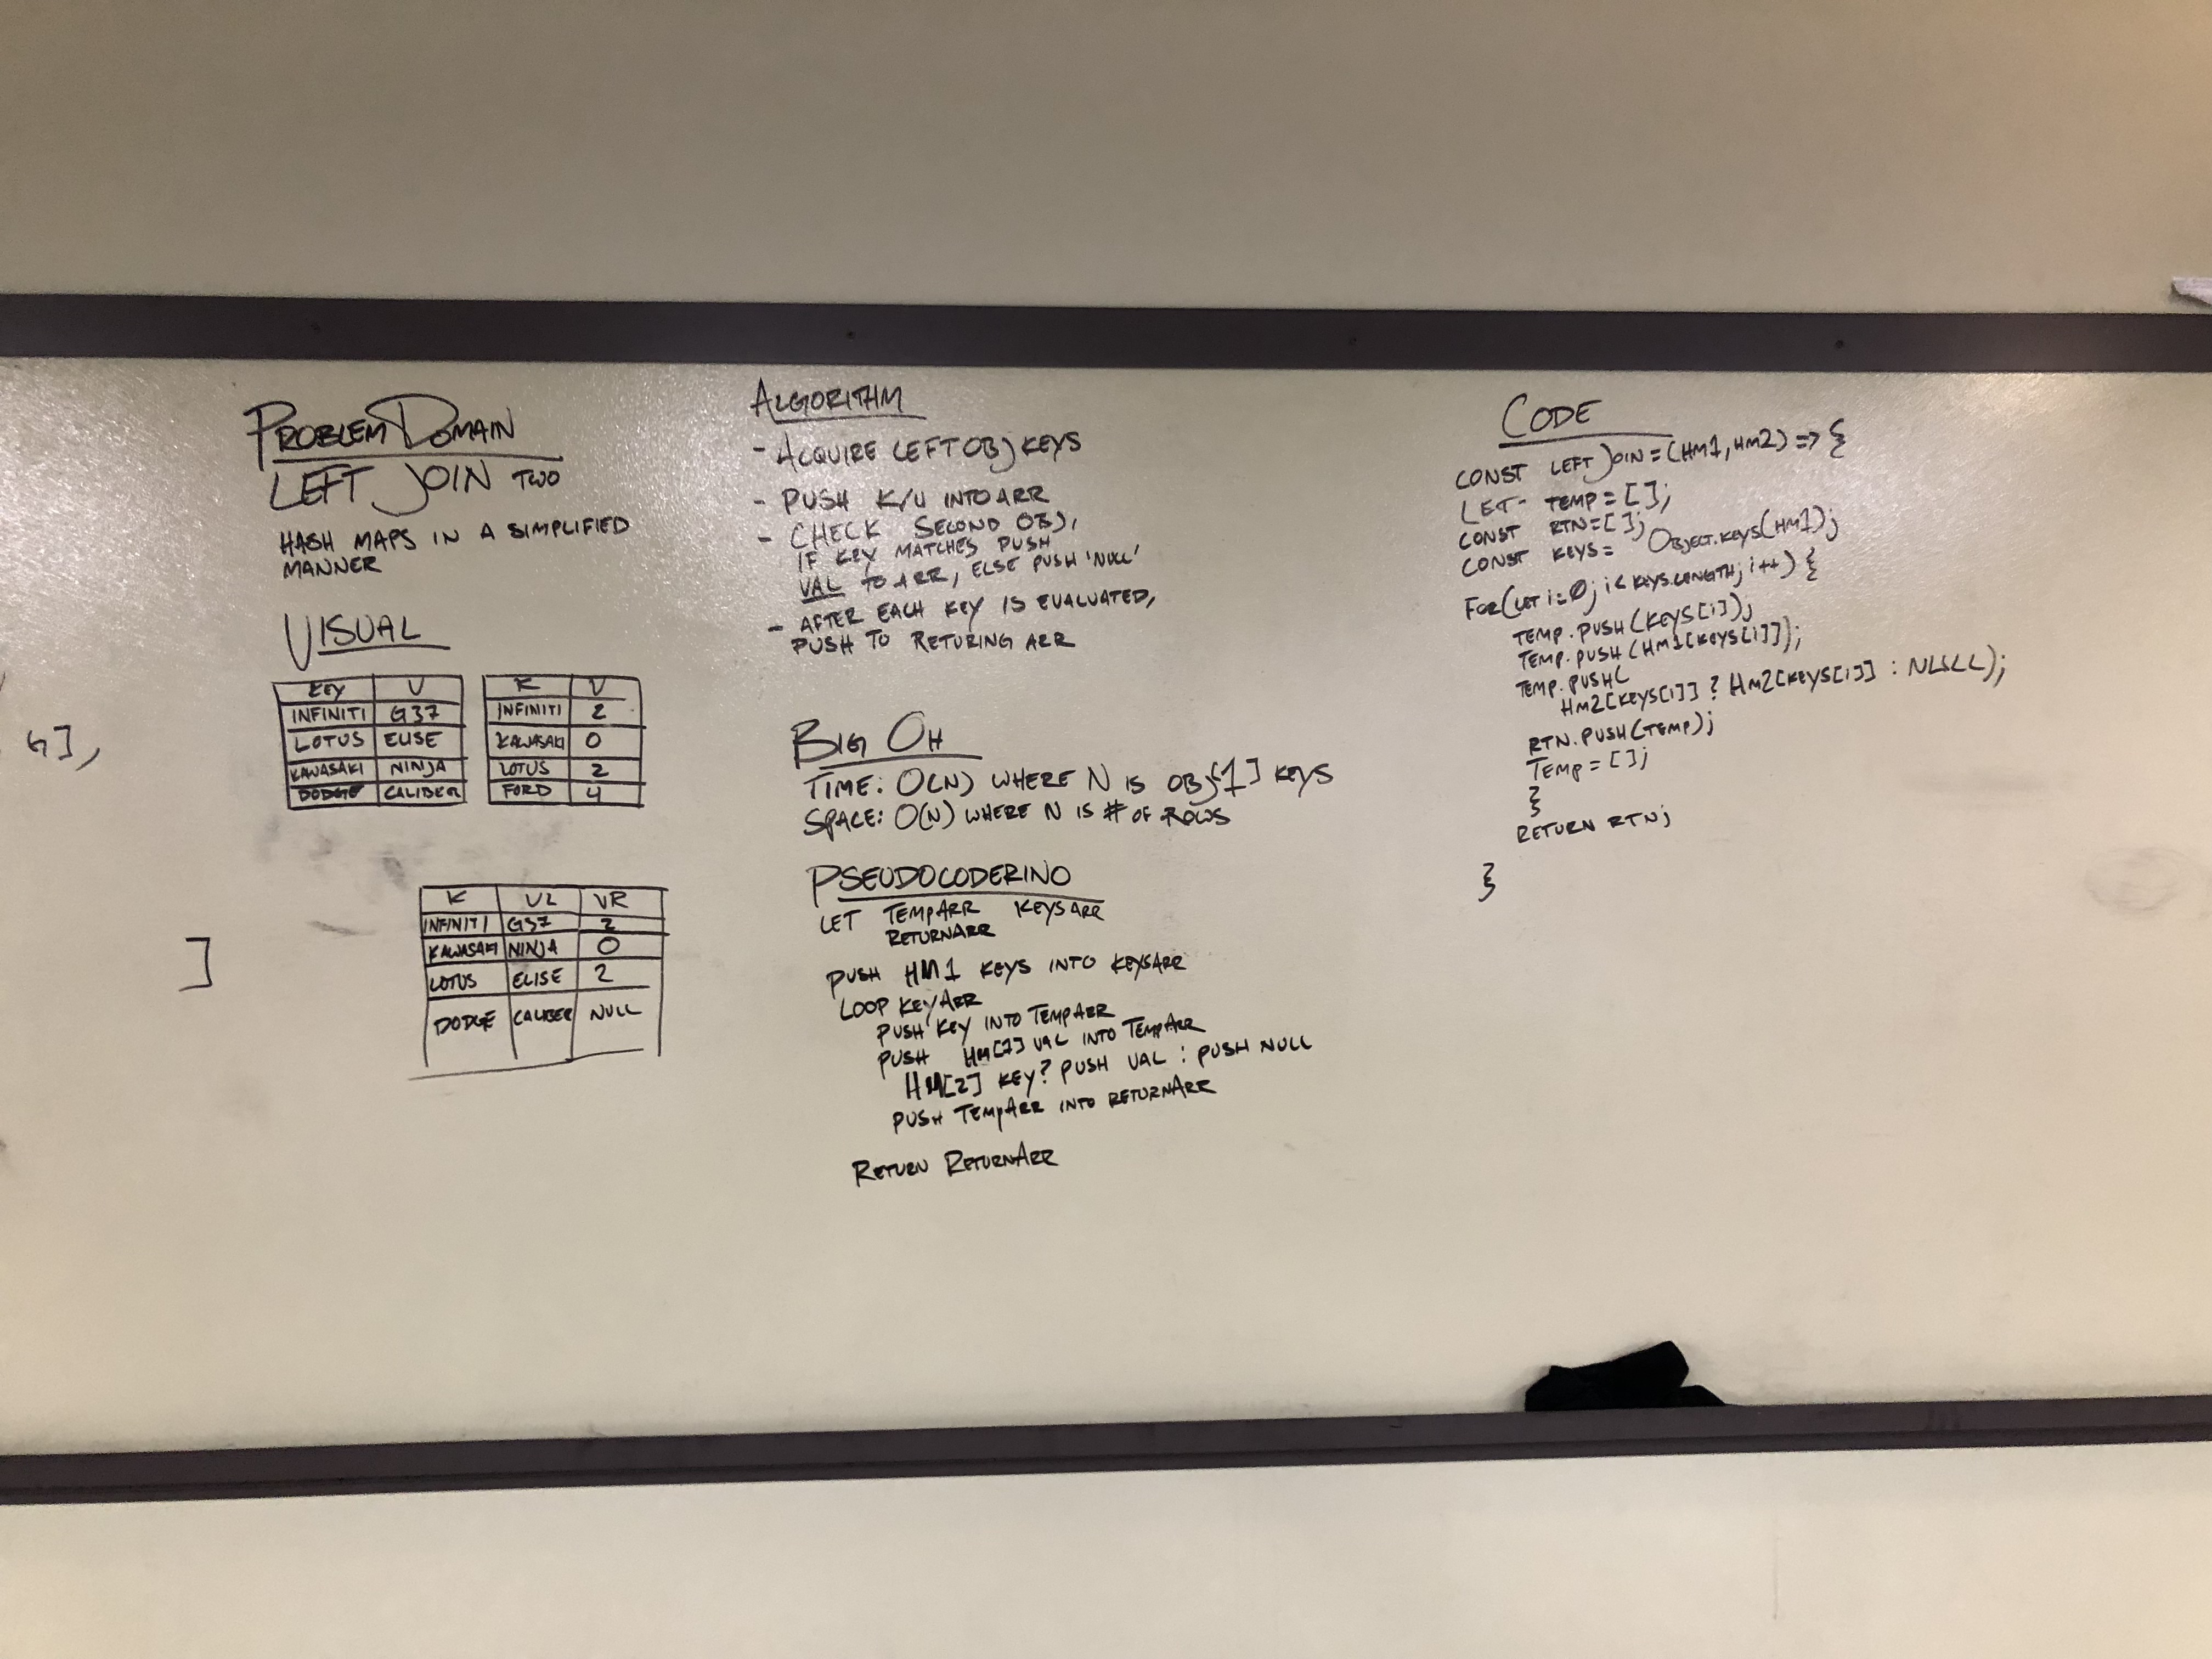 PROBLEM DOMAIN
LEFT JOIN TWO
HASH MAPS IN A SIMPLIFIED
MANNER
VISUAL
KEY V
INFINITI G37
LOTUS ELISE
KAWASAKI NINJA
DODGE CALIBER
K V
INFINITI 2
KAWASAKI 0
LOTUS 2
FORD 4
G],
]
K VL VR
INFINITI G37 2
KAWASAKI NINJA 0
LOTUS ELISE 2
DODGE CALIBER NULL
ALGORITHM
- ACQUIRE LEFT OBJ KEYS
- PUSH K/V INTO ARR
- CHECK SECOND OBJ,
IF KEY MATCHES PUSH
VAL TO ARR, ELSE PUSH 'NULL'
- AFTER EACH KEY IS EVALUATED,
PUSH TO RETURING ARR
BIG OH
TIME: O(N) WHERE N IS OBJ[1] KEYS
SPACE: O(N) WHERE N IS # OF ROWS
PSEUDOCODERINO
LET TEMPARR KEYSARR
RETURNARR
PUSH HM1 KEYS INTO KEYSARR
LOOP KEYARR
PUSH KEY INTO TEMPARR
PUSH HM[1] VAL INTO TEMPARR
HM[2] KEY? PUSH VAL : PUSH NULL
PUSH TEMPARR INTO RETURNARR
RETURN RETURNARR
CODE
CONST LEFTJOIN = (HM1, HM2) => {
LET TEMP = [];
CONST RTN = [];
CONST KEYS = OBJECT.KEYS(HM1);
FOR(LET i=0; i< KEYS.LENGTH; i++) {
TEMP.PUSH(KEYS[i]);
TEMP.PUSH(HM1[KEYS[i]]);
TEMP.PUSH(
HM2[KEYS[i]] ? HM2[KEYS[i]] : NULL);
RTN.PUSH(TEMP);
TEMP = [];
}
RETURN RTN;
}